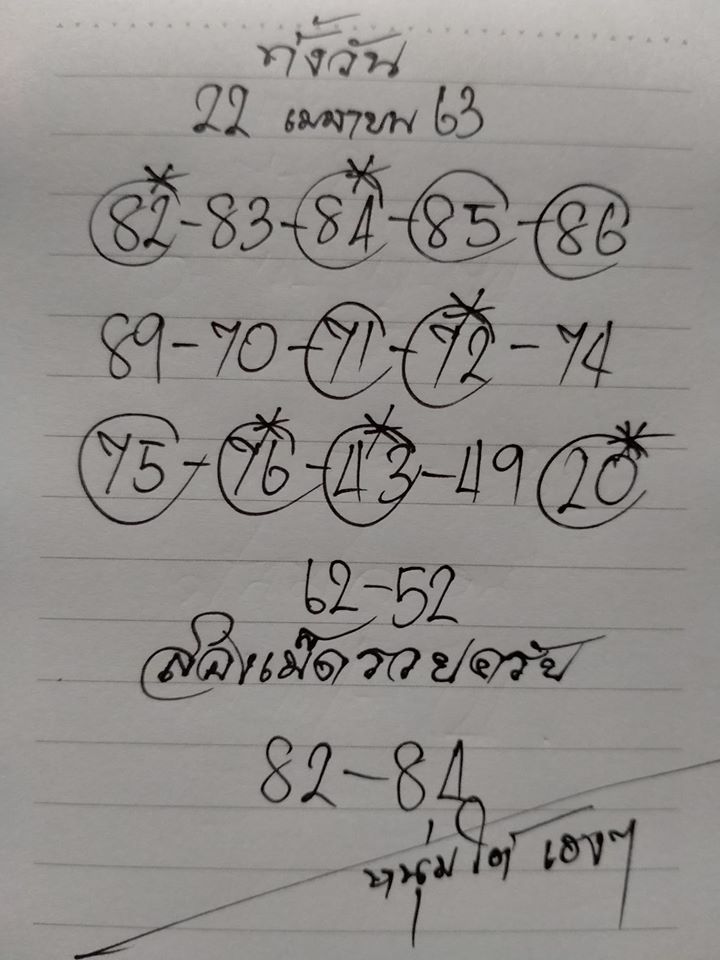 ทั้งวัน
22 เมษายน 63
82-83-84-85-86
89-70-71-72-74
75-76-43-49 20
62-52
สองเม็ดรวยครับ
82-84
หนุ่มใต้ เองๆ